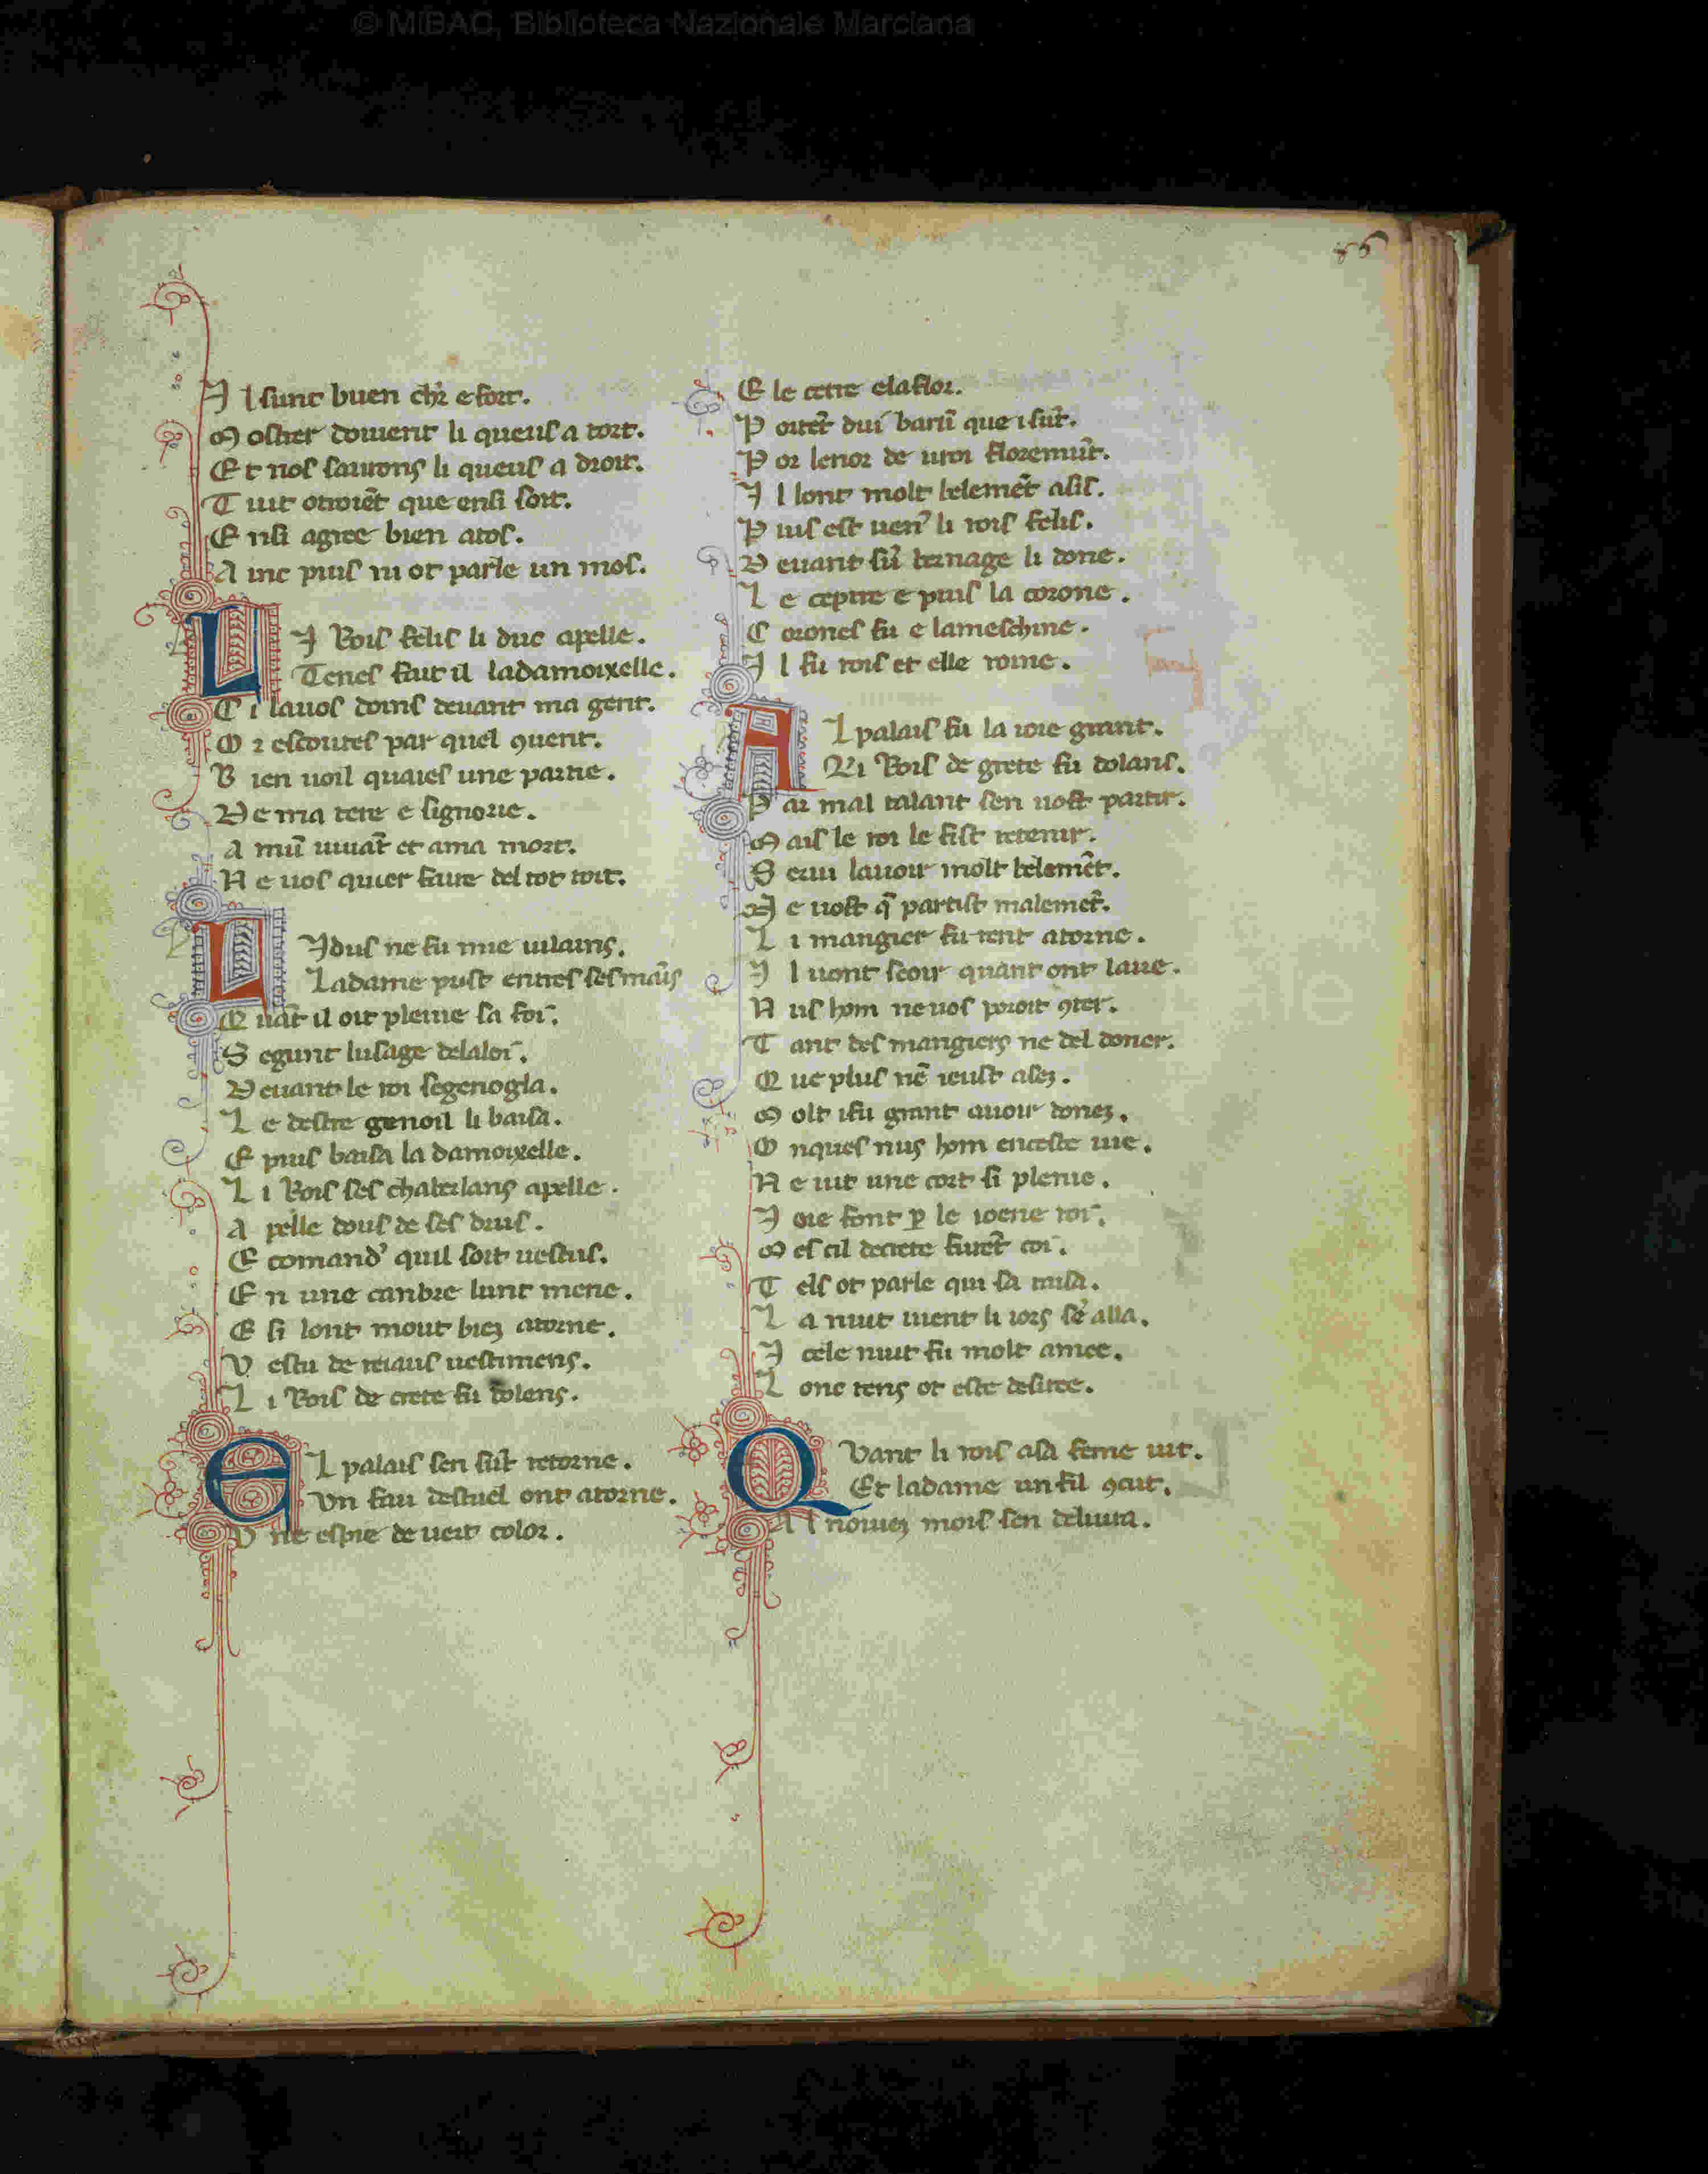 © MiBAC, Biblioteca Nazionale Marciana
86
I l sunt buen chr̃ e fort.
M oster douient li queus a tort.
E t nos saurons li queus a droit.
T uit otroiẽt que ensi soit.
E nsi agree bien atos.
A inc puis ni ot parle un mos.
L I Rois felis li duc apelle.
Tenes fait il ladamoixelle.
C i lauos doins deuant ma gent.
O r escoutes par quel ꝯuent.
B ien uoil quaies une partie.
D e ma tere e signorie.
A mũ uiuãt et ama mort.
N e uos quier faire del tot tort.
L Idus ne fu mie uilains.
Ladame prist entres ses maĩs
Q uãt il oit pleuie sa foi.
S egunt lusage delaloi.
D euant le roi segenogla.
L e destre genoil li baisa.
E puis baisa la damoixelle.
L i Rois ses chaterlans apelle.
A pelle dous de ses drus.
E comand' quil soit uestus.
E n une canbre lunt mene.
E si lont mout biẽ atorne.
V estu de reiaus uestimens.
L i Rois de crete fu dolens.
E L palais sen sũt retorne.
Vn fau destuel ont atorne.
V ne espie de uert color.
E le cette elaflor.
P ortẽt dui barũ que i sũt.
P or lenor de uroi floremũt.
I l lont molt belemẽt asis.
P uis est uen' li rois felis.
D euant sũ bernage li done.
L e ceptre e puis la corone.
C orones fu e lameschine.
I l fu rois et elle roine.
A L palais fu la ioie grant.
Li Rois de grete fu dolans.
P ar mal talant sen uost partir.
M ais le roi le fist retenir.
S erui lauoir molt belemẽt.
N e uost q̃ partist malemẽt.
L i mangier furent atorne.
I l uont seoir quant ont laue.
N us hom ne uos poroit ꝯter.
T ant des mangiers ne del doner.
Q ue plus nẽ ieust asez.
M olt ifu grant auoir donez.
O nques nus hom enceste uie.
N e uit une cort si plenie.
I oie font ꝑ le ioene roi.
M es cil decrete furẽt coi.
T els ot parle qui sa
L a nuit uient li iors sẽ alla.
I cele nuit fu molt amee.
L onc tens ot este desiree.
Q Vant li rois asa feme iut.
Et ladame un fil ꝯcut.
A l nouiez mois sen deliura.